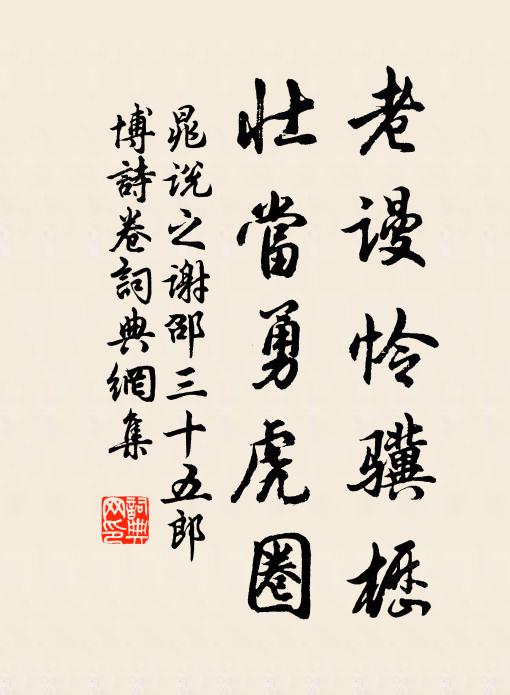 老谩怜骥枥
壮當勇虎圈
晁说之谢邵三十五郎
博詩卷詞典網集
詞典网印